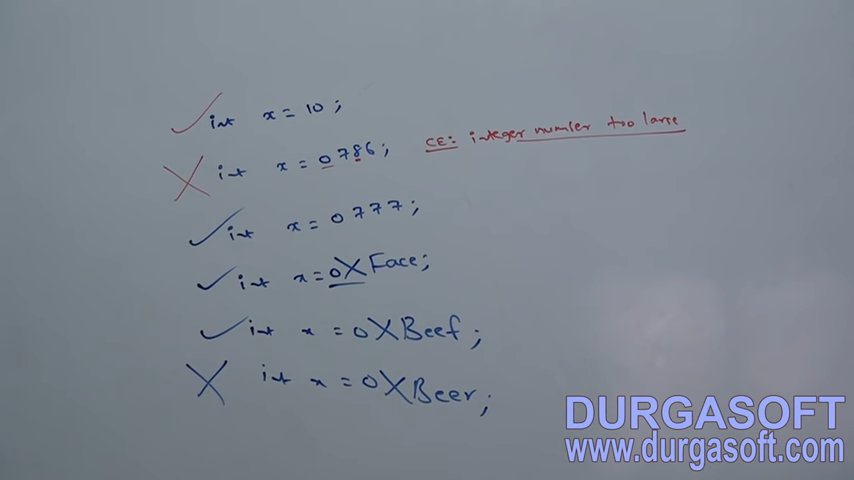 int x = 10 ;
int x = 0786 ; CE: integer number too large
int x = 0777 ;
int x = 0XFace ;
int x = 0XBeef ;
int x = 0XBeer ;
DURGASOFT
www.durgasoft.com